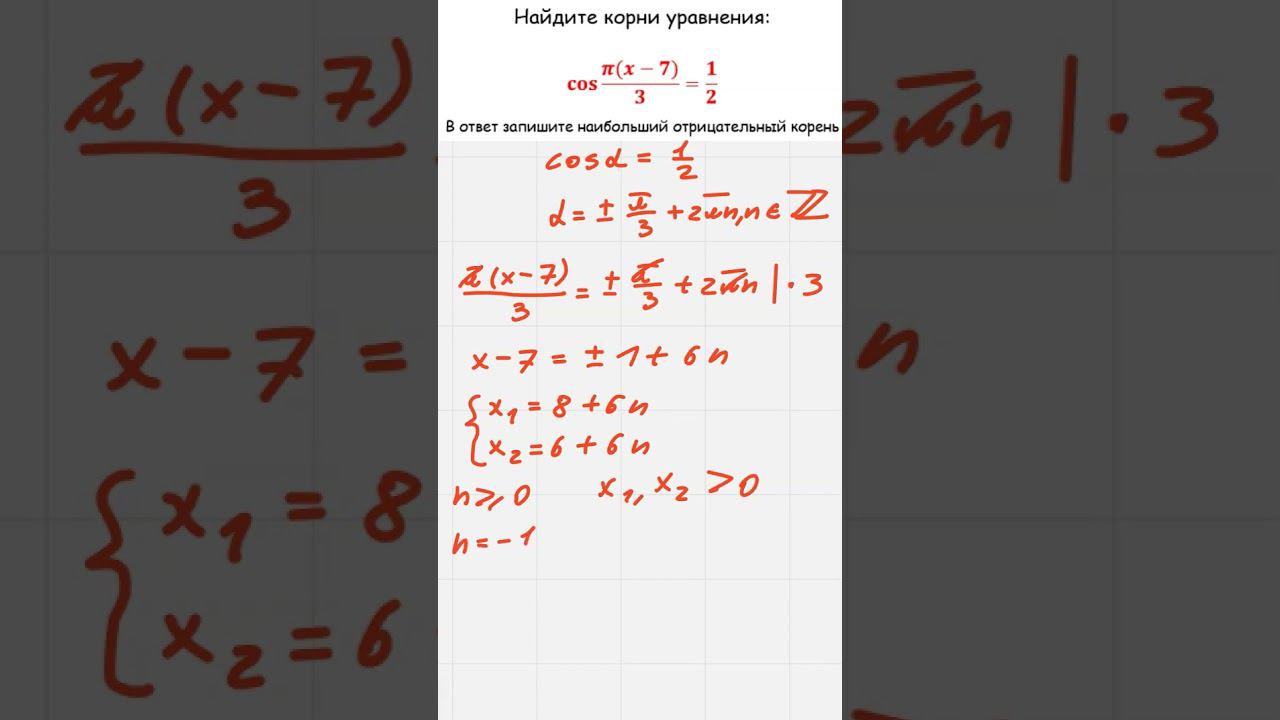 Найдите корни уравнения:
cos π(x − 7)/3 = 1/2
В ответ запишите наибольший отрицательный корень
cos α = 1/2
α = ± π/3 + 2πn, n ∈ ℤ
π(x − 7)/3 = ± π/3 + 2πn | · 3
x − 7 = ± 1 + 6n
{ x₁ = 8 + 6n
x₂ = 6 + 6n
n ⩾ 0 x₁, x₂ > 0
n = − 1